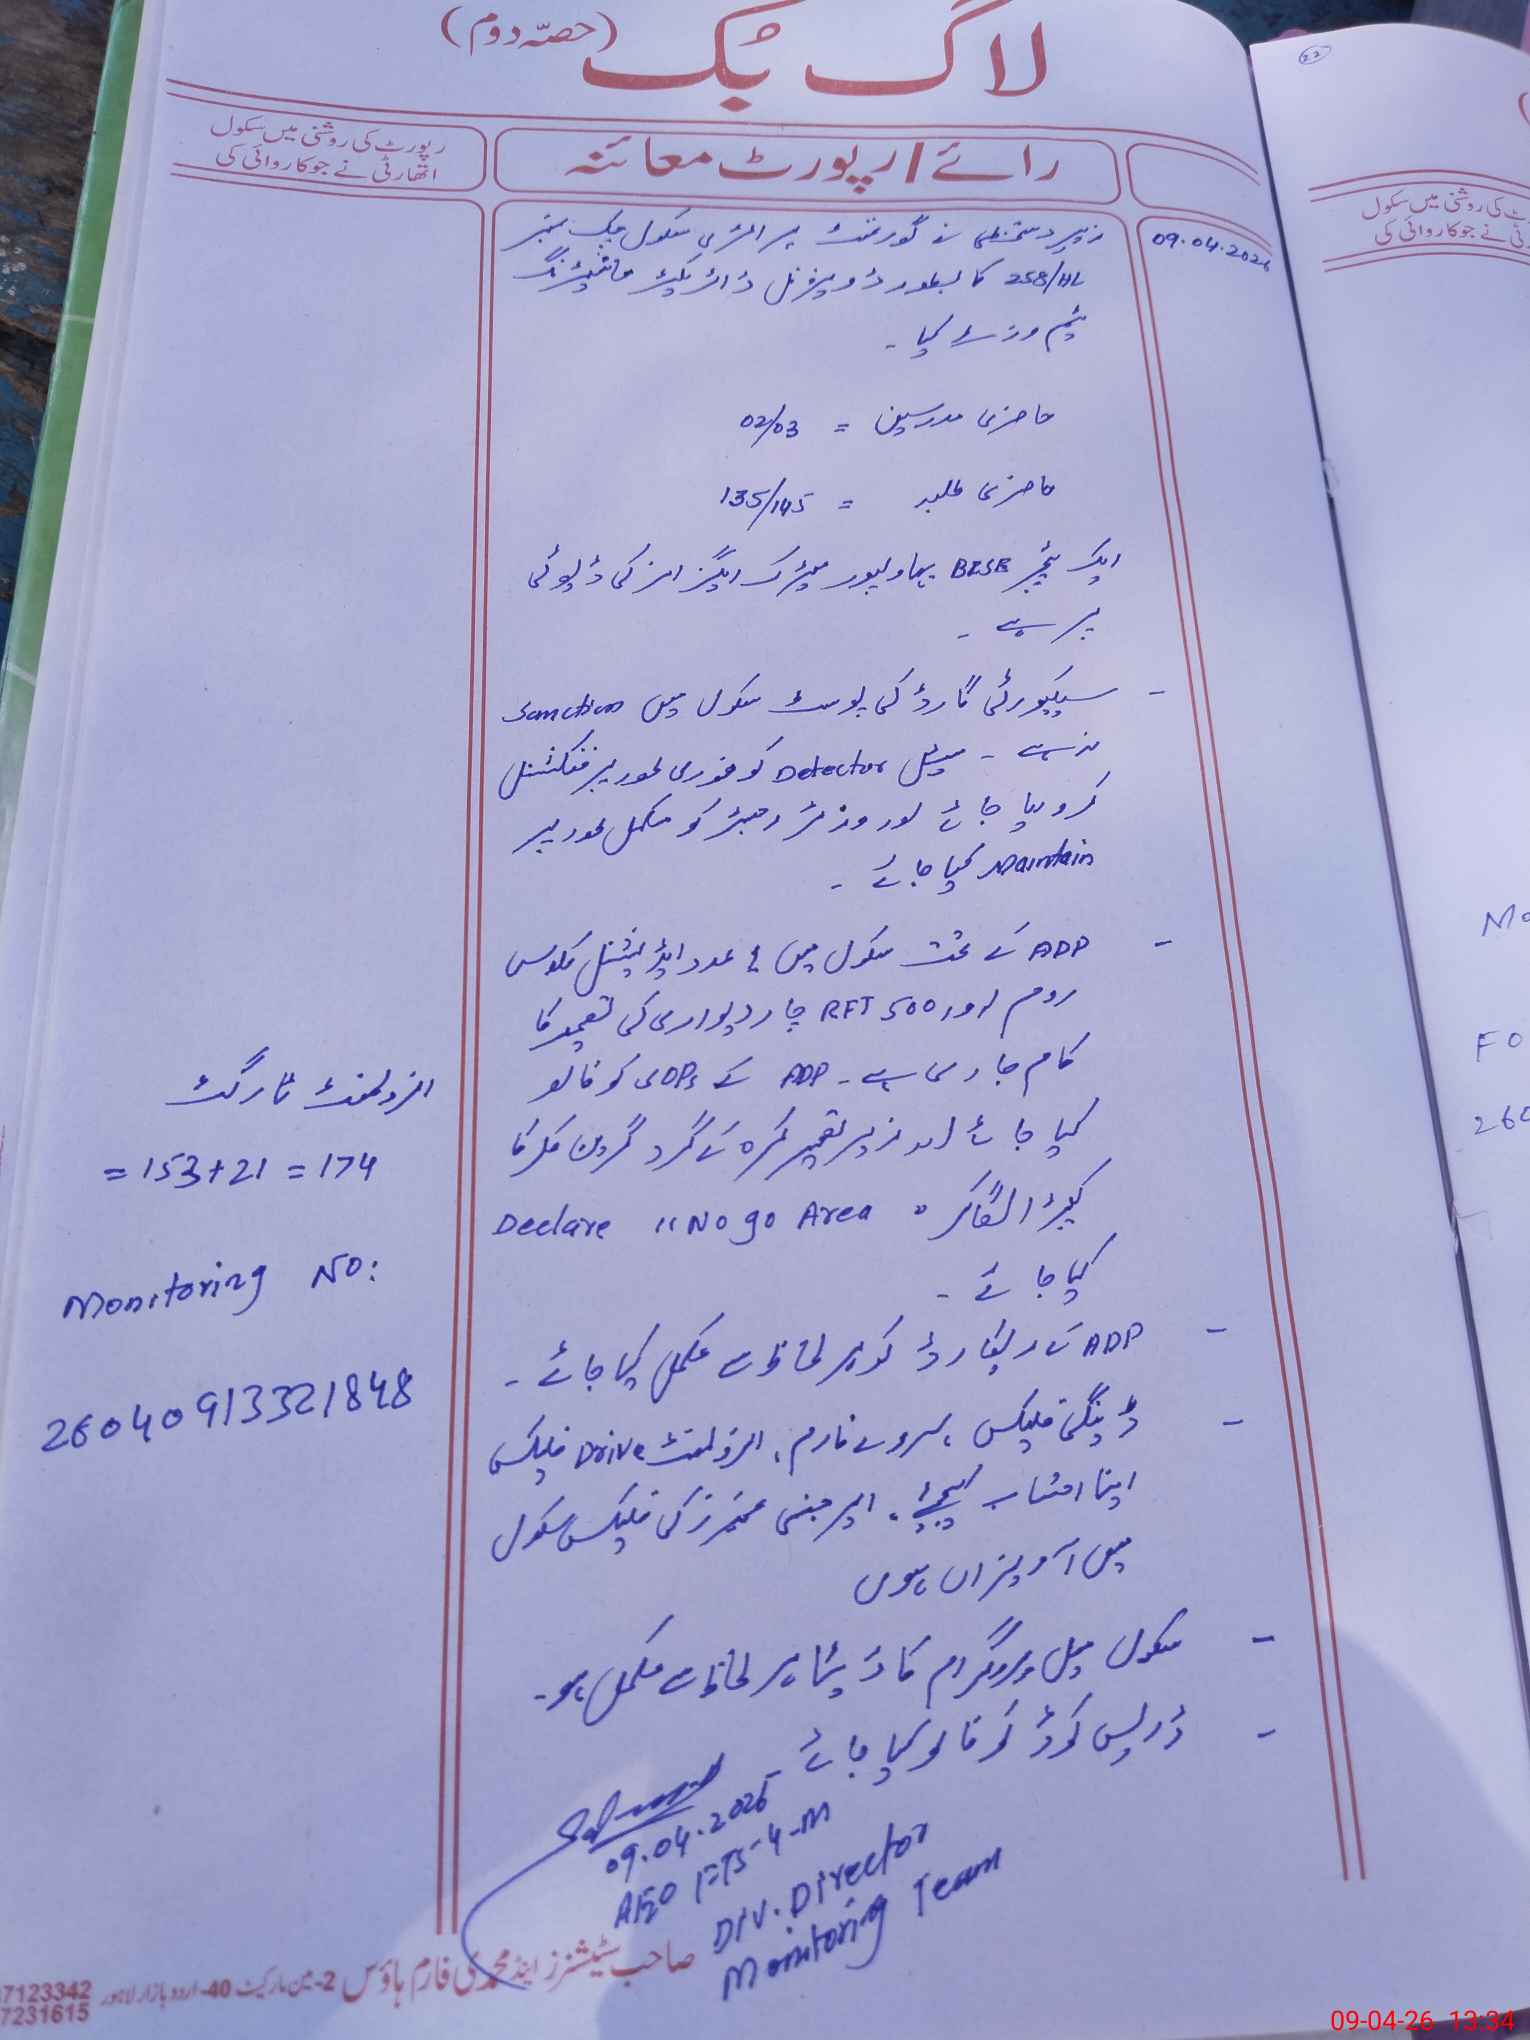 لاگ بک (حصّہ دوم)
رائے / رپورٹ معائنہ
رپورٹ کی روشنی میں سکول
اتھارٹی نے جو کاروائی کی
09.04.2026
زیر دستخطی نے گورنمنٹ پرائمری سکول چک نمبر
258/HL کا بطور ڈویژنل ڈائریکٹر مانیٹرنگ
ٹیم وزٹ کیا ۔
حاضری مدرسین = 02/03
حاضری طلبہ = 135/145
ایک ٹیچر BISE بہاولپور میٹرک ایگزامز کی ڈیوٹی
پر ہے ۔
- سیکیورٹی گارڈ کی پوسٹ سکول میں Sanction
نہ ہے ۔ میٹل Detector کو فوری طور پر فنکشنل
کروایا جائے اور وزٹر رجسٹر کو مکمل طور پر
Maintain کیا جائے ۔
- ADP کے تحت سکول میں عدد ایڈیشنل کلاس
روم اور 500 RFT چار دیواری کی تعمیر کا
کام جاری ہے ۔ ADP کے SOPs کو فالو
کیا جائے اور زیر تعمیر کمرہ کے گرد گرین کلر کا
کپڑا لگا کر "No go Area" Declare
کیا جائے ۔
- ADP کے ریکارڈ کو ہر لحاظ سے مکمل کیا جائے ۔
- ڈینگی فلیکس ، سروے فارم ، انرولمنٹ Drive فلیکس
اپنا احتساب کیجیے ، ایمرجنسی نمبرز کی فلیکس سکول
میں آویزاں ہوں
- سکول میل پروگرام کا ڈیٹا ہر لحاظ سے مکمل ہو ۔
- ڈریس کوڈ کو فالو کیا جائے ۔
09.04.2026
AEO FTS-4-M
Div. Director
Monitoring Team
انرولمنٹ ٹارگٹ
= 153+21 = 174
Monitoring No:
26040913321848
صاحب سٹیشنرز اینڈ محمدی فارم ہاؤس 2-مین مارکیٹ 40-اردو بازار لاہور
7123342
7231615
22
رٹ کی روشنی میں سکول
نے جو کاروائی کی
Mo
FO
260
09-04-26 13:34